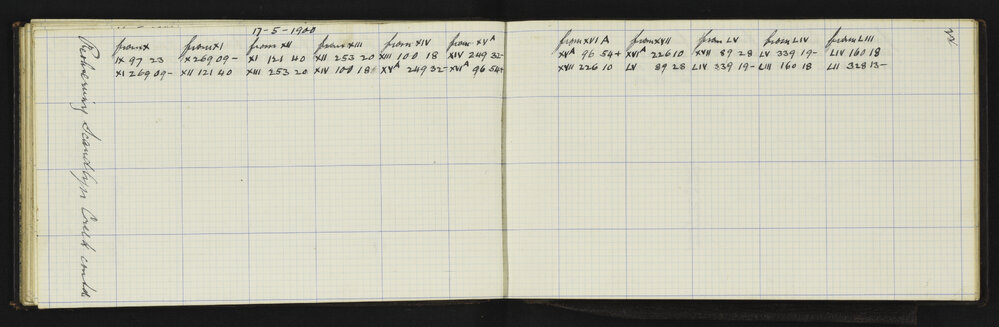 17-5-1900
from X from XI from XII from XIII from XIV from XV A
IX 97 23 X 269 09- XI 121 40 XII 253 20 XIII 100 18 XIV 249 32-
XI 269 09- XII 121 40 XIII 253 20 XIV 100 18 XV A 249 32- XVI A 96 54+
from XVI A from XVII from LV from LIV from LIII
XV A 96 54+ XVI A 226 10 XVII 89 28 LV 339 19- LIV 160 18
XVII 226 10 LV 89 28 LIV 339 19- LIII 160 18 LII 328 13-
Creek contd